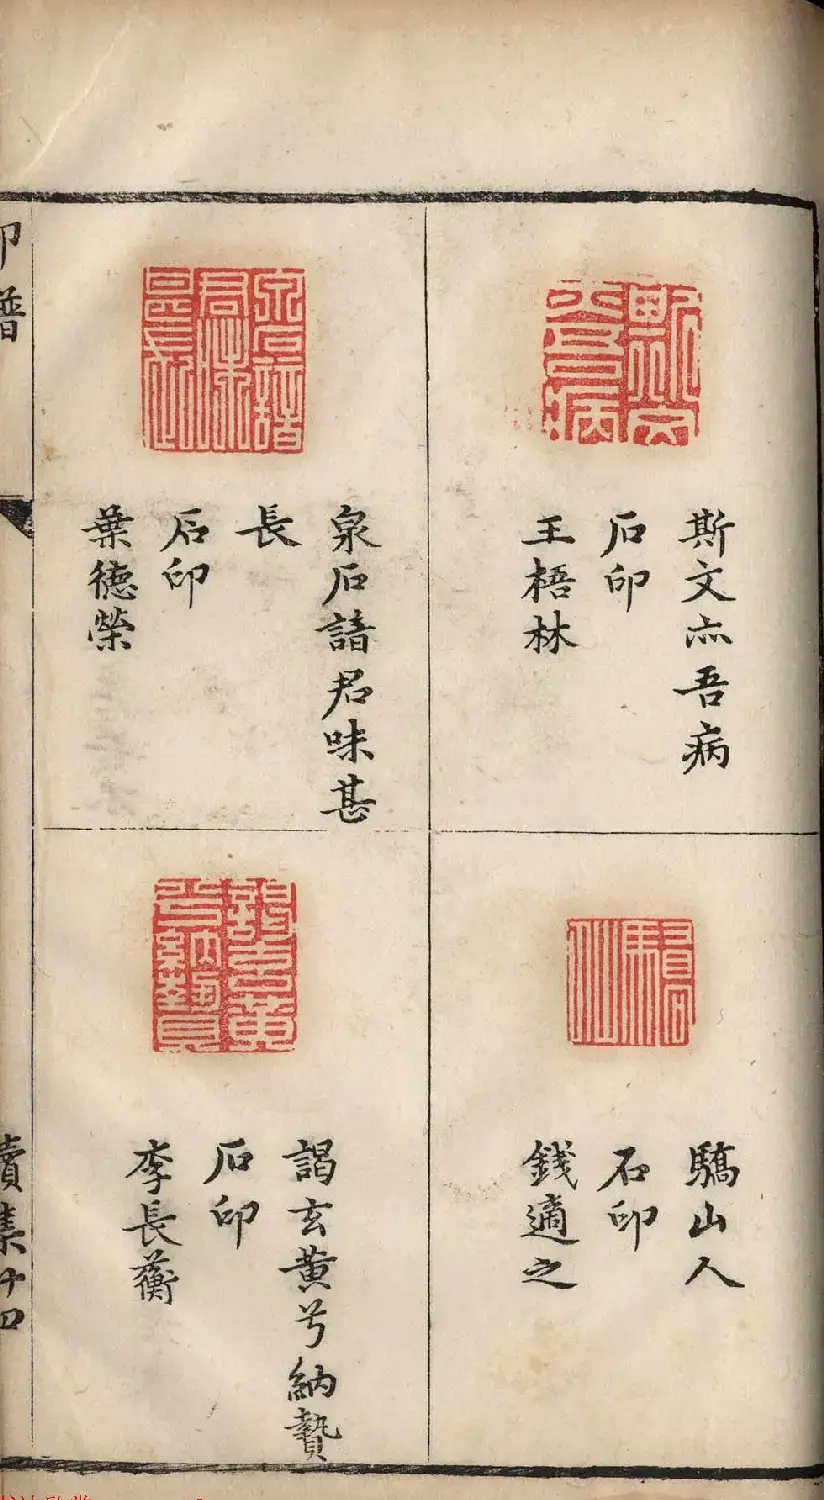 斯文亦吾病
石印
王梧林
驕山人
石印
錢適之
泉石諳君味甚
長
石印
葉德榮
謁玄黃兮納贄
石印
李長蘅
印譜
續集十四